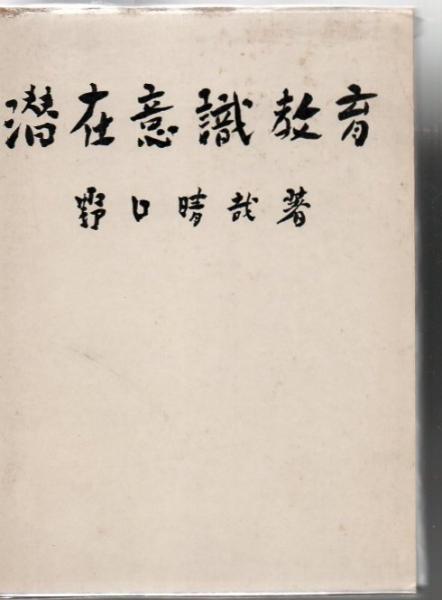 潜在意識教育
野口晴哉著